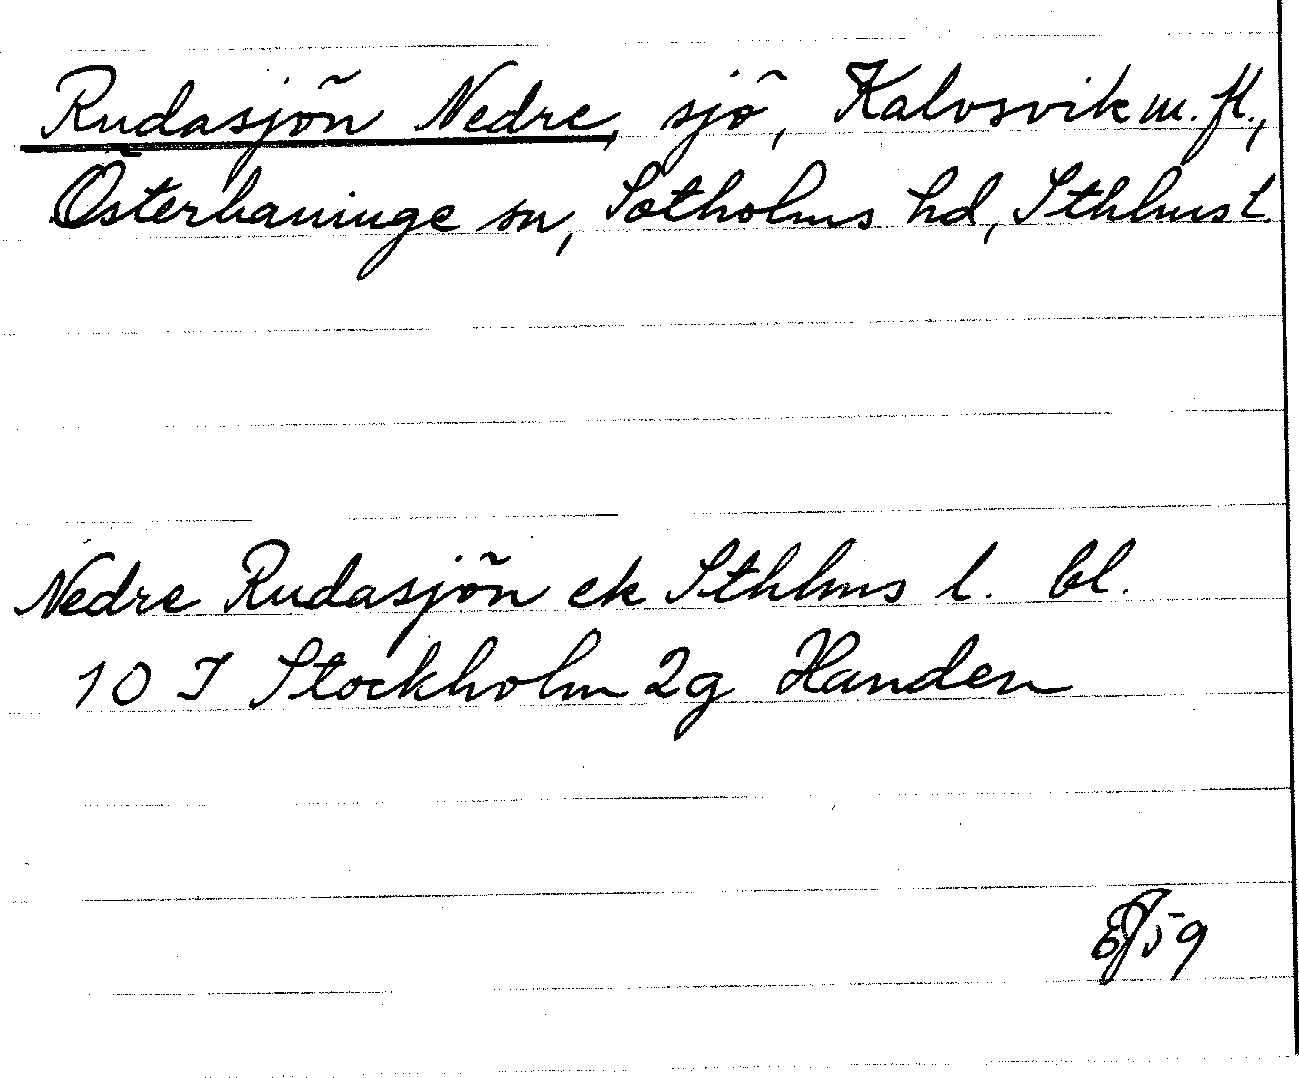 Rudasjön Nedre, sjö, Kalvsvik m. fl.,
Österhaninge sn, Sotholms hd, Sthlms l.
Nedre Rudasjön ek Sthlms l. bl.
10 I Stockholm 2g Handen
59